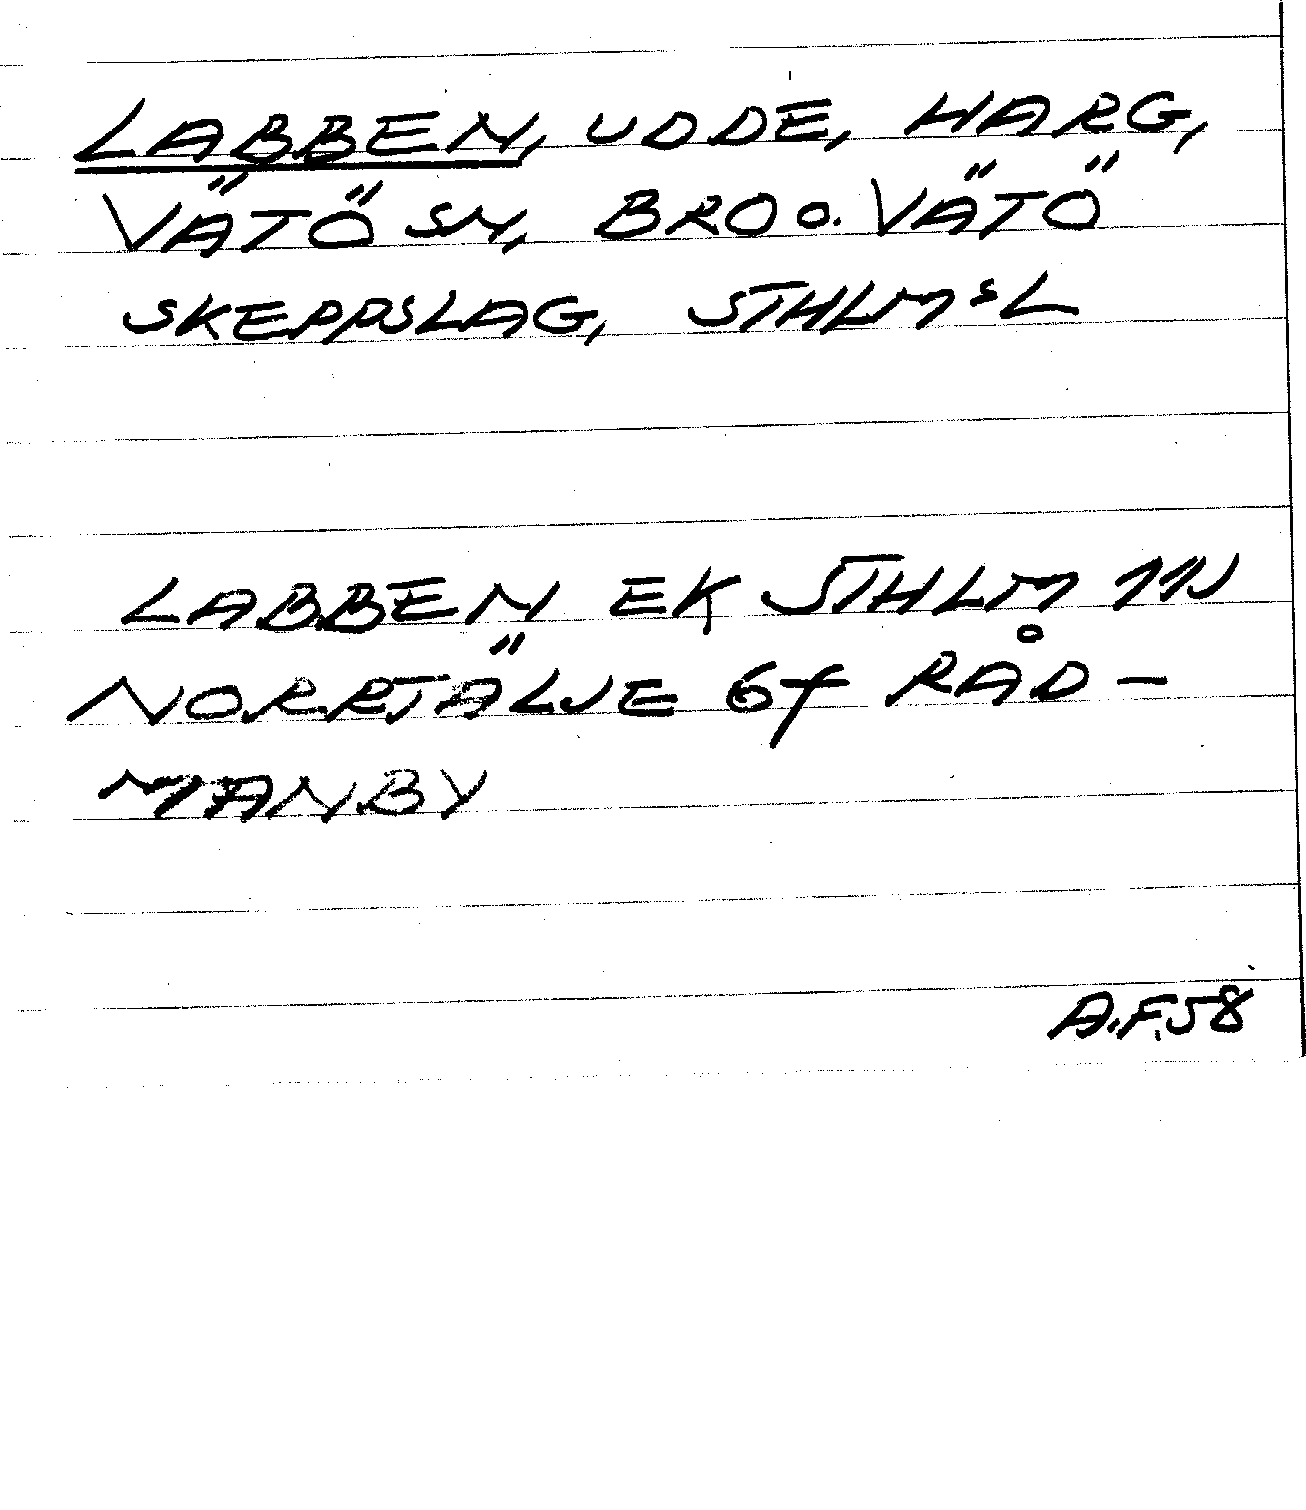 LABBEN, UDDE, HARG,
VÄTÖ SN, BRO O. VÄTÖ
SKEPPSLAG, STHLMSL
LABBEN EK STHLM 11NJ
NORRTÄLJE 6f RÅD-
MANBY
A.F.58